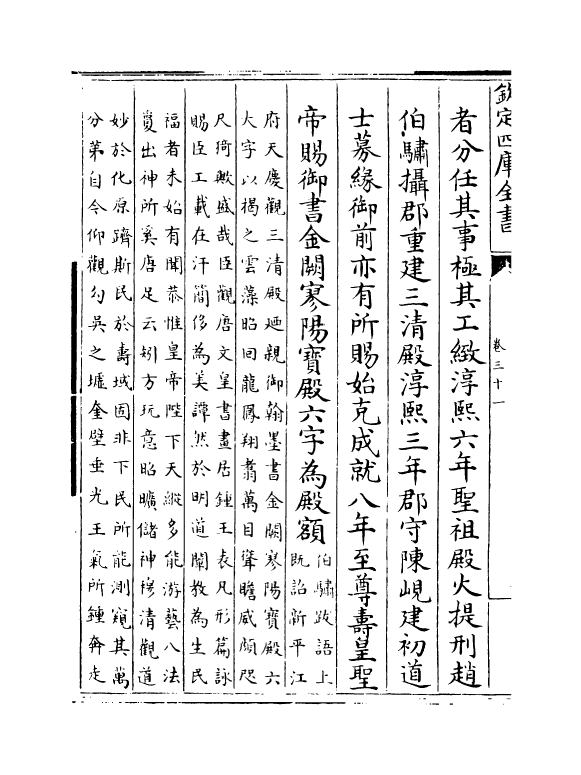 欽定四庫全書
卷三十一
者分任其事極其工緻淳熙六年聖祖殿火提刑趙
伯驌攝郡重建三清殿淳熙三年郡守陳峴建初道
士募緣御前亦有所賜始克成就八年至尊壽皇聖
帝賜御書金闕寥陽寶殿六字為殿額
伯驌跋語上
既詔新平江
府天慶觀三清殿廼親御翰墨書金闕寥陽寶殿六
大字以榜之雲藻昭回龍鳳翔翥萬目聳瞻威顔咫
尺猗歟盛哉臣觀唐文皇書畫居鍾王表凡形篇詠
賜臣工載在汗簡侈為美譚然於明道闡教為生民
福者未始有聞恭惟皇帝陛下天縱多能游藝八法
夐出神所奚唐足云矧方玩意昭曠儲神穆清觀道
妙於化原躋斯民於壽域固非下民所能測窺其萬
分第自今仰觀勾吳之墟奎壁垂光王氣所鍾奔走